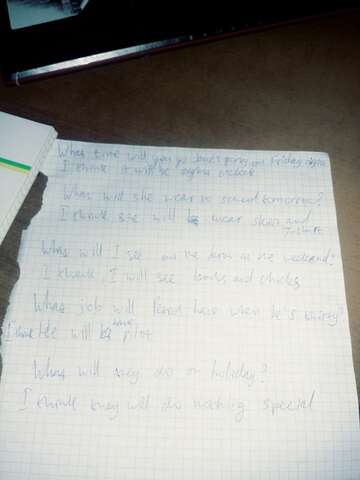 What time will you go party on Friday
I think it will be eight o'clock
What will she wear to school tomorrow?
I think she will wear skirt and
T-shirt
What will I see on the farm at the weekend?
I think I will see lambs and chicks
What job will have when he's thirty?
I think He will be have pilot
What will they do on holiday?
I think they will do nothing special